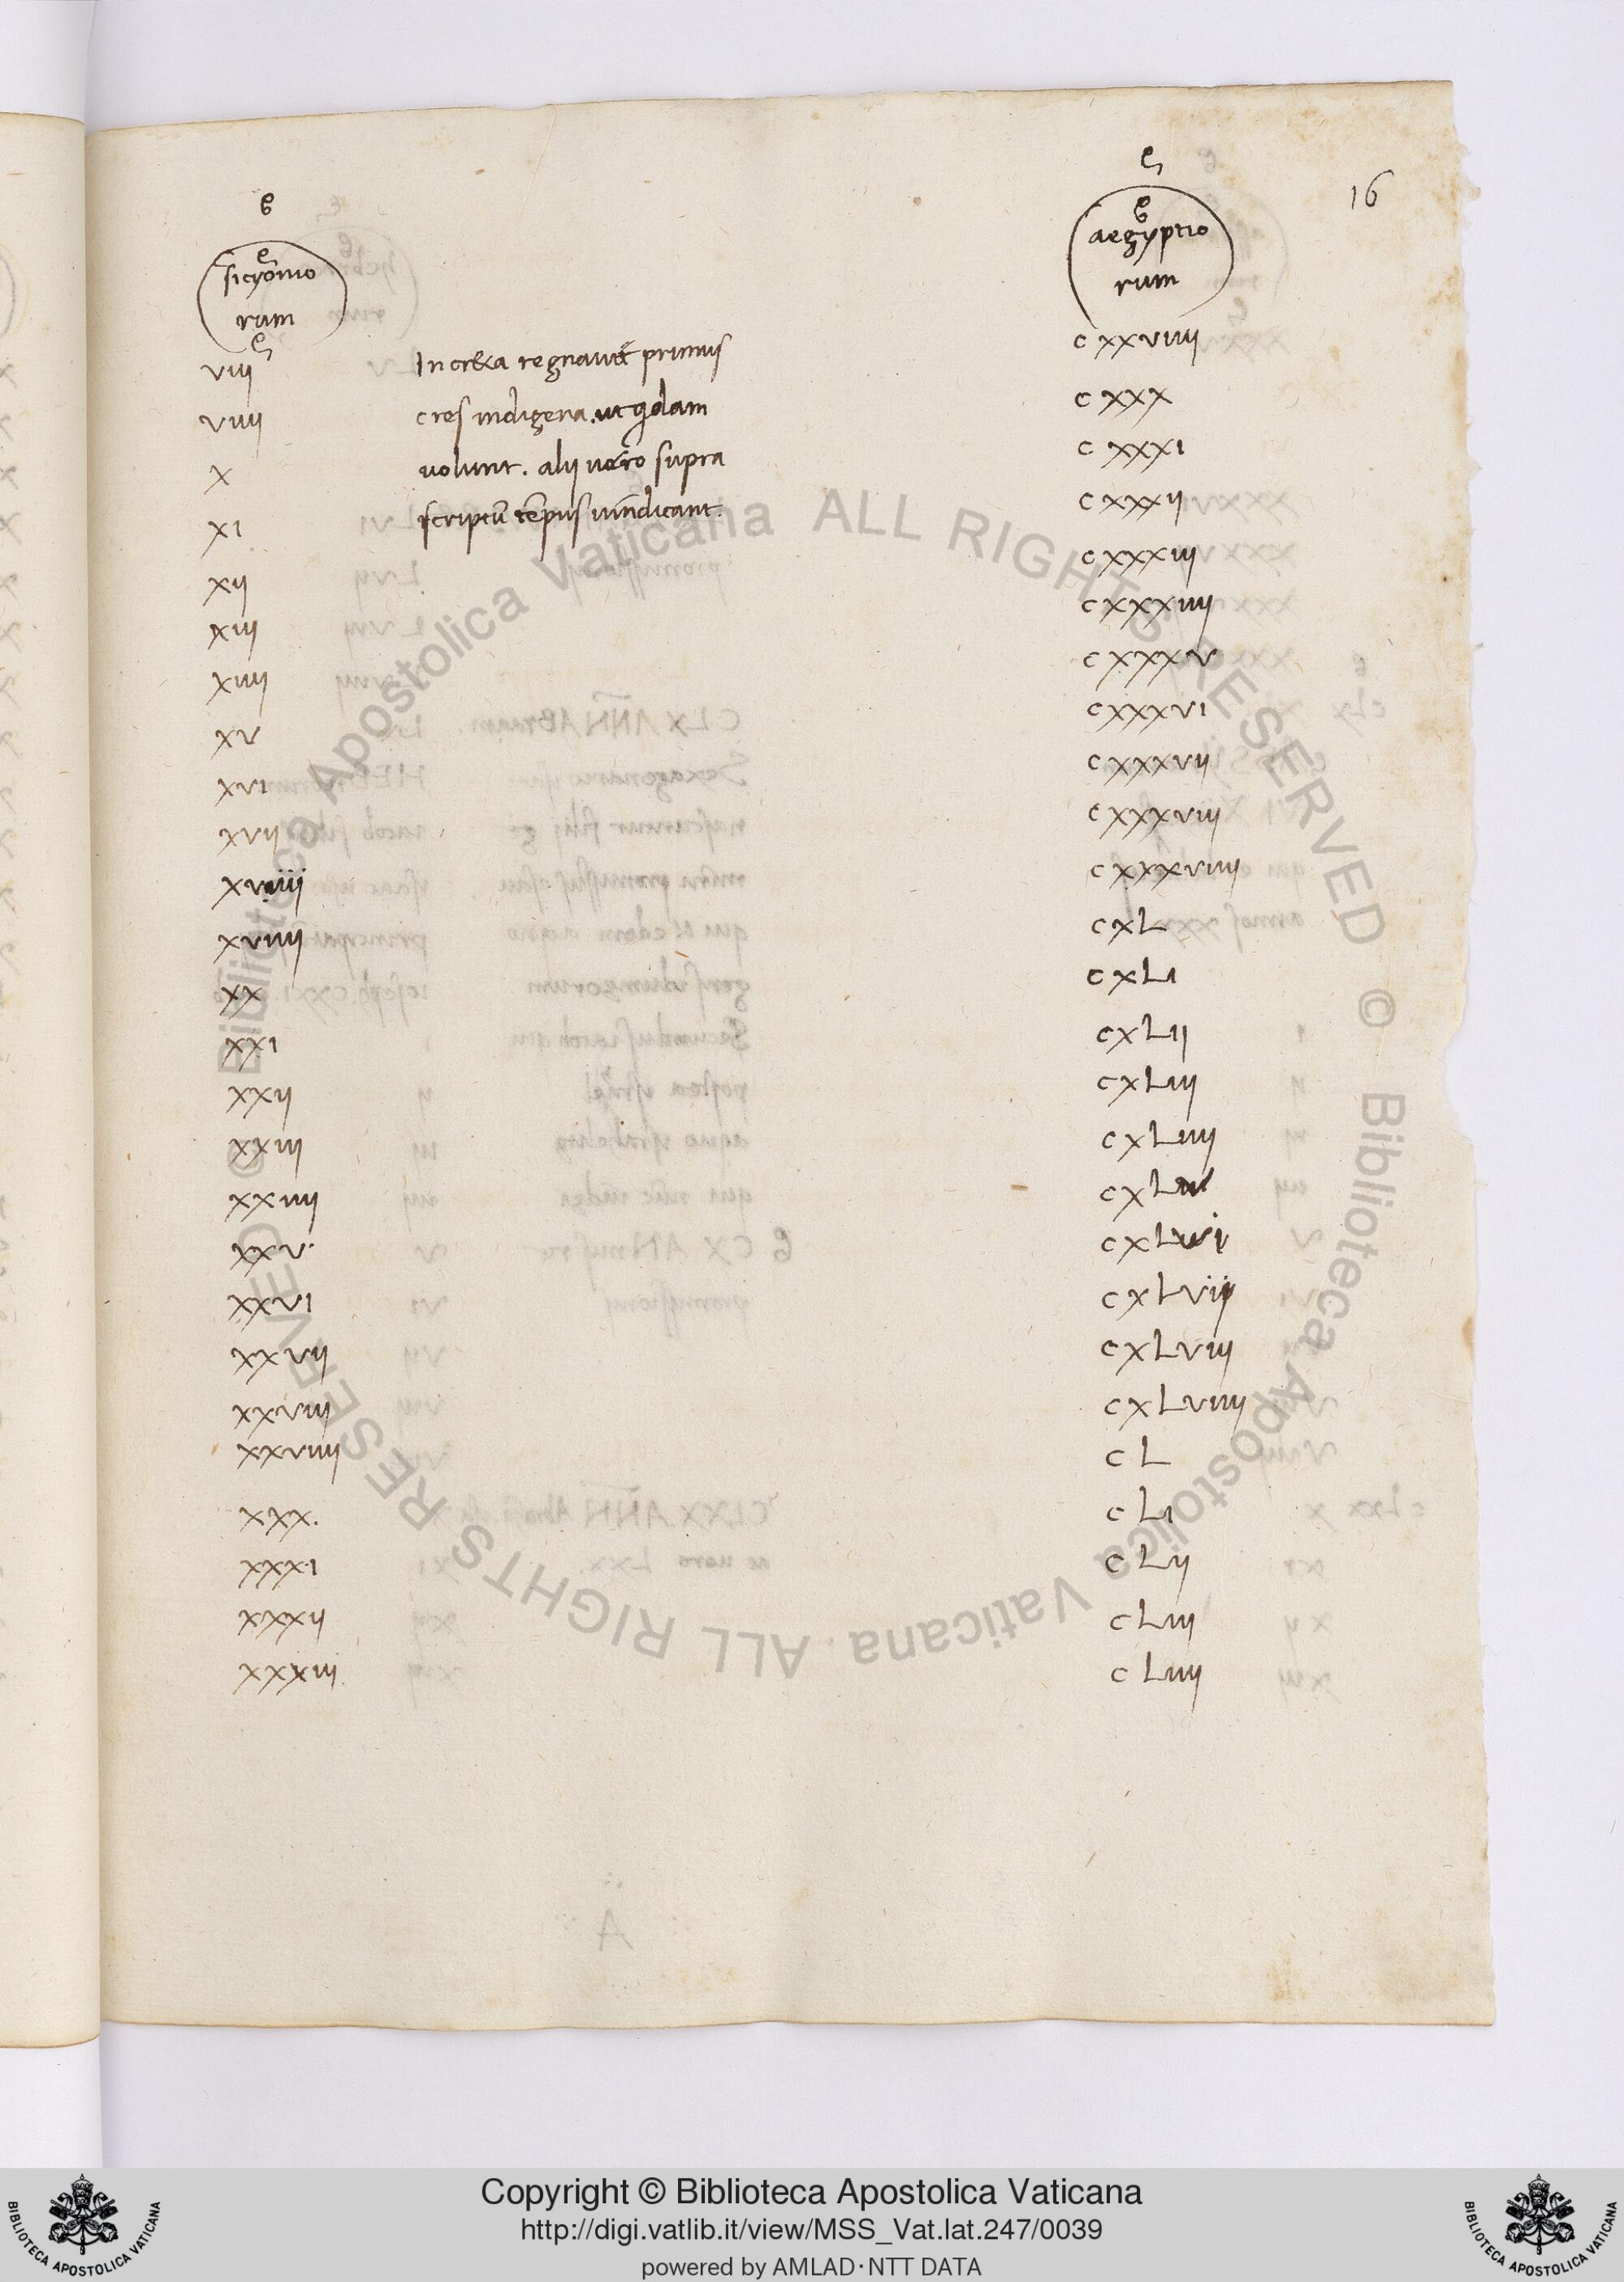 16
sicyonio
rum
aegyptio
rum
In creta regnauit primus
cres indigena. ut qdam
uolunt. alij uero supra
scriptū tēpus uindicant.
viij
viiij
x
xi
xij
xiij
xiiij
xv
xvi
xvij
xviiij
xviiij
xx
xxi
xxij
xxiij
xxiiij
xxv.
xxvi
xxvij
xxviij
xxviiij
xxx.
xxxi
xxxij
xxxiij
cxxviiij
cxxx
cxxxi
cxxxij
cxxxiij
cxxxiiij
cxxxv
cxxxvi
cxxxvij
cxxxviij
cxxxviiij
cxL
cxLi
cxLij
cxLiij
cxLiiij
cxLv
cxLvi
cxLvij
cxLviij
cxLviiij
cL
cLi
cLij
cLiij
cLiiij
© Biblioteca Apostolica Vaticana ALL RIGHTS RESERVED © Biblioteca Apostolica Vaticana ALL RIGHTS RESERVED
Copyright © Biblioteca Apostolica Vaticana
http://digi.vatlib.it/view/MSS_Vat.lat.247/0039
powered by AMLAD·NTT DATA
BIBLIOTECA APOSTOLICA VATICANA
BIBLIOTECA APOSTOLICA VATICANA